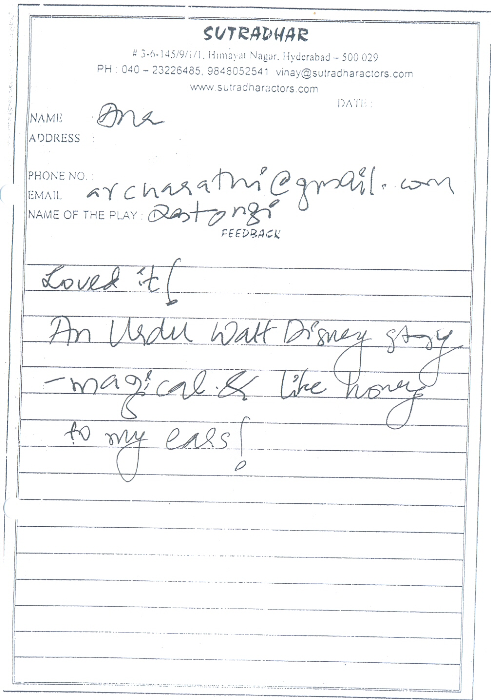 SUTRADHAR
# 3-6-145/9/1/1, Himayat Nagar, Hyderabad – 500 029
PH : 040 – 23226485, 9848052541 vinay@sutradharactors.com
www.sutradharactors.com
DATE :
NAME :
ADDRESS :
PHONE NO. :
EMAIL archarathi@gmail.com
NAME OF THE PLAY : Dastangoi
FEEDBACK
Loved it!
An Urdu Walt Disney story
- magical & like honey
to my ears!